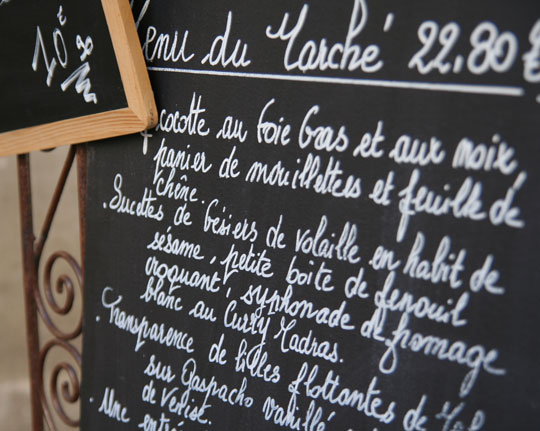 10€
Menu du Marché 22.80 €
+ cocotte au Foie Gras et aux noix,
panier de mouillettes et feuille de
chêne.
. Sucettes de Gésiers de volaille en habit de
sésame, petite boite de fenouil
croquant, syphonade de fromage
blanc au Curry Madras.
. Transparence de billes flottantes de
sur Gaspacho vanillé
de Venise.
. Une